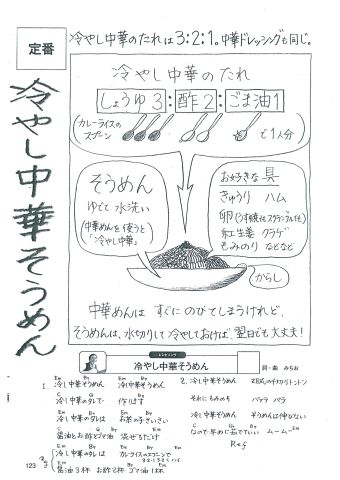 定番
冷やし中華のたれは3:2:1。中華ドレッシングも同じ。
冷やし中華そうめん
冷やし中華のたれ
しょうゆ3:酢2:ごま油1
(カレーライスのスプーン
で1人分)
そうめん
ゆでて 水洗い
(中華めんを使うと
「冷やし中華」)
お好きな具
きゅうり ハム
卵(うす焼きorスクランブルも)
紅生姜 クラゲ
もみのり などなど
からし
中華めんは すぐにのびてしまうけれど、
そうめんは、水切りして冷やしておけば、翌日でも大丈夫!
レシピソング
冷やし中華そうめん
詞・曲 みちお
1. 冷やし中華そうめん 冷やし中華そうめん
冷やし中華のタレで 作ります
冷やし中華のタレは お茶の子さいさい
醤油とお酢とゴマ油 混ぜるだけ
冷やし中華のタレは カレーのスプーンで
醤油3杯 お酢2杯 ゴマ油1杯
2. 冷やし中華そうめん
それに もみのり パラ パラ
冷やし中華そうめん そうめんは伸びない
なので早めに茹でていい ムームー
Ref
123